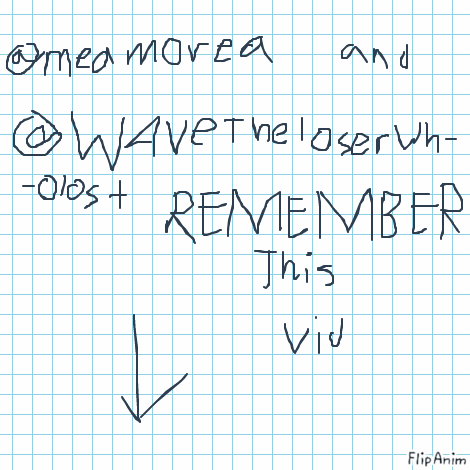 @meamorea and
@WAVeTheloserwh-
-olost REMEMBER
This
vid
FlipAnim